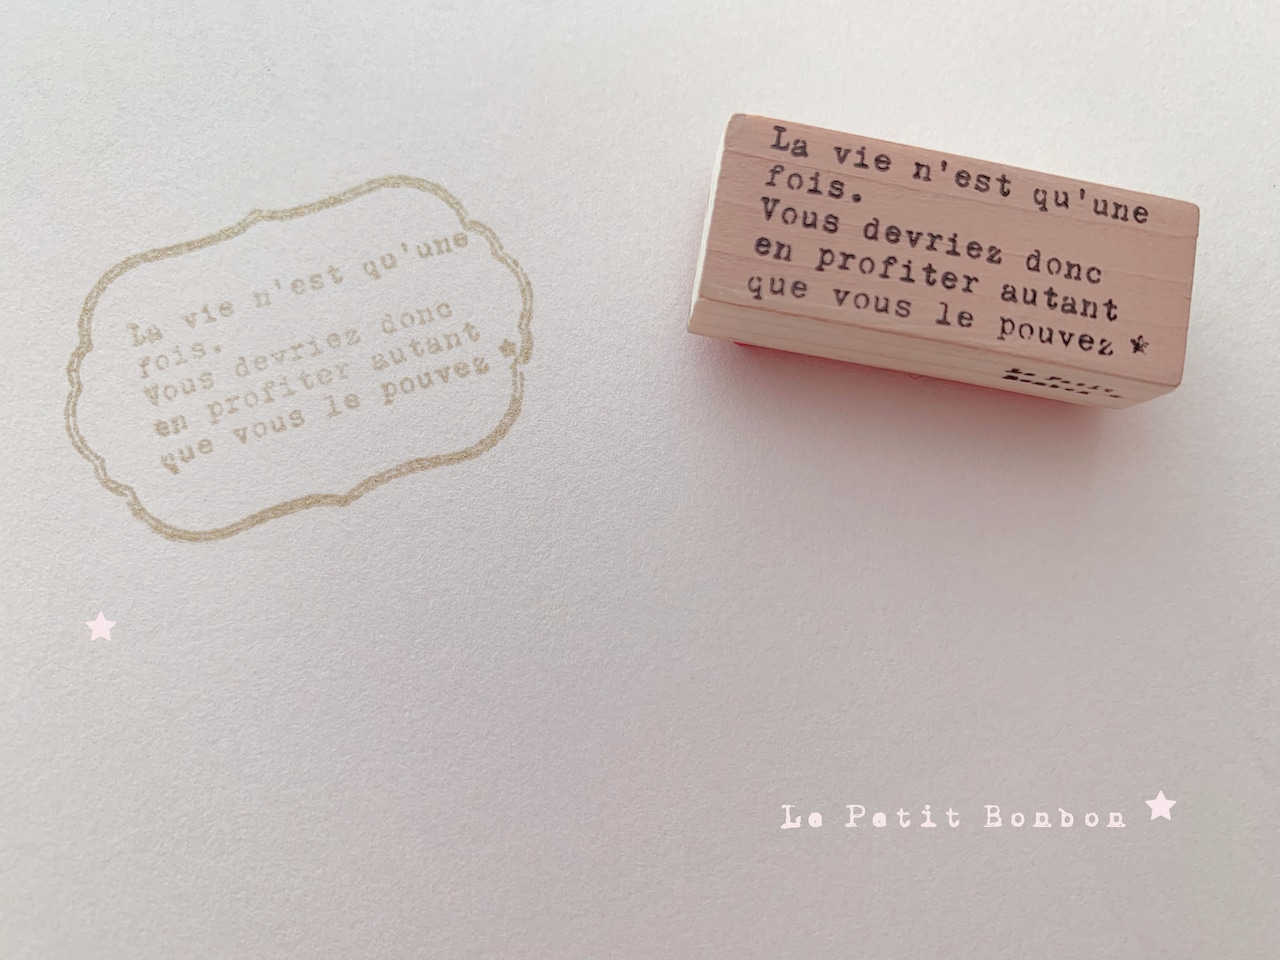 La vie n'est qu'une
fois.
Vous devriez donc
en profiter autant
que vous le pouvez
La vie n'est qu'une
fois.
Vous devriez donc
en profiter autant
que vous le pouvez
Le Petit
Bonbon
Le Petit Bonbon